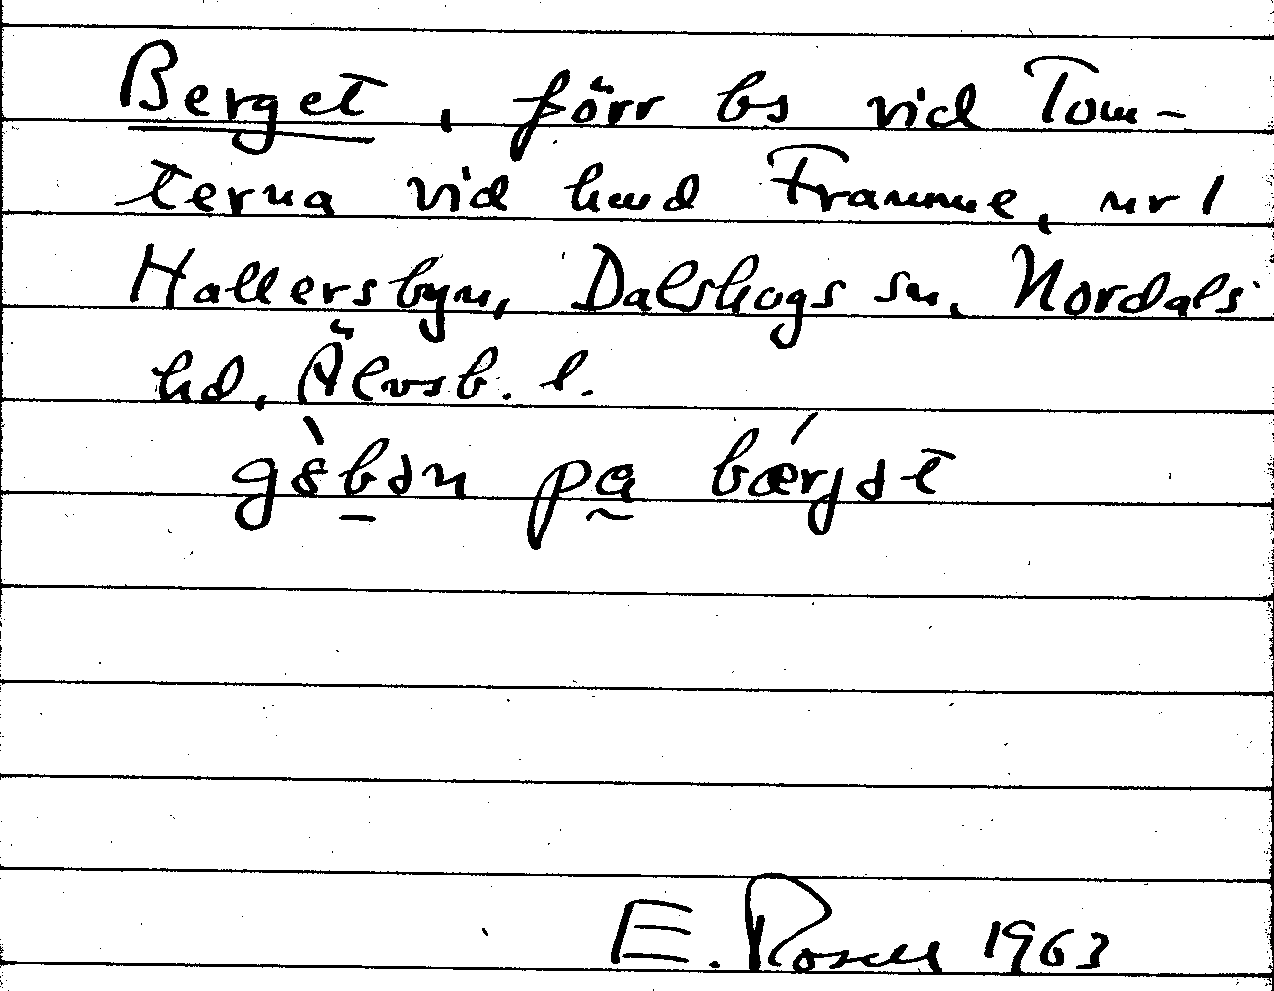 Berget, förr bs vid Tom-
terna vid hmd Framme, nr 1
Hallersbyn, Dalskogs sn, Nordals
hd, Älvsb. l.
på bærjət
E. Rosell 1963